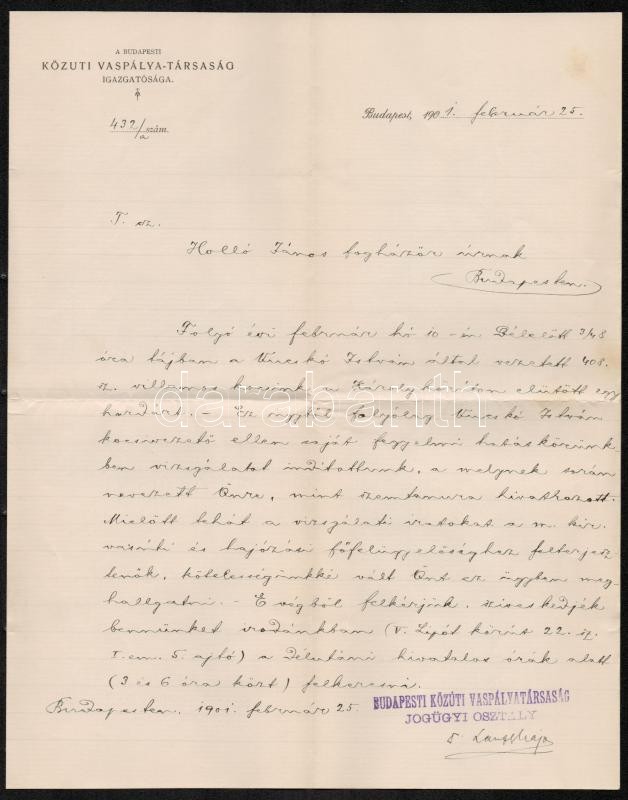 A BUDAPESTI
KÖZUTI VASPÁLYA-TÁRSASÁG
IGAZGATÓSÁGA.
432/a szám.
Budapest, 1901. február 25.
T. sz.
Holló János fogházőr úrnak
Budapesten.
Folyó évi február hó 10-én Délelőtt 3/4 8
óra tájban a Vincskó István által vezetett 408.
sz. villamos kocsink a Károlykörúton elütött egy
hordárt. – Ez ügyből kifolyólag Vincskó István
kocsivezető ellen saját fegyelmi hatáskörünk-
ben vizsgálatot indítottunk, a melynek során
nevezett Önre, mint szemtanura hivatkozott.
Mielőtt tehát a vizsgálati iratokat a m. kir.
vasúti és hajózási főfelügyelőséghez felterjesz
tenők, kötelességünkké vált Önt ez ügyben meg-
hallgatni. – E végből felkérjük, sziveskedjék
bennünket irodánkban (V. Lipót körút 22. sz.
I. em. 5. ajtó) a Délutáni hivatalos órák alatt
(3 és 6 óra közt) felkeresni.
Budapesten, 1901. február 25.
BUDAPESTI KÖZÚTI VASPÁLYATÁRSASÁG
JOGÜGYI OSZTÁLY
darabanth